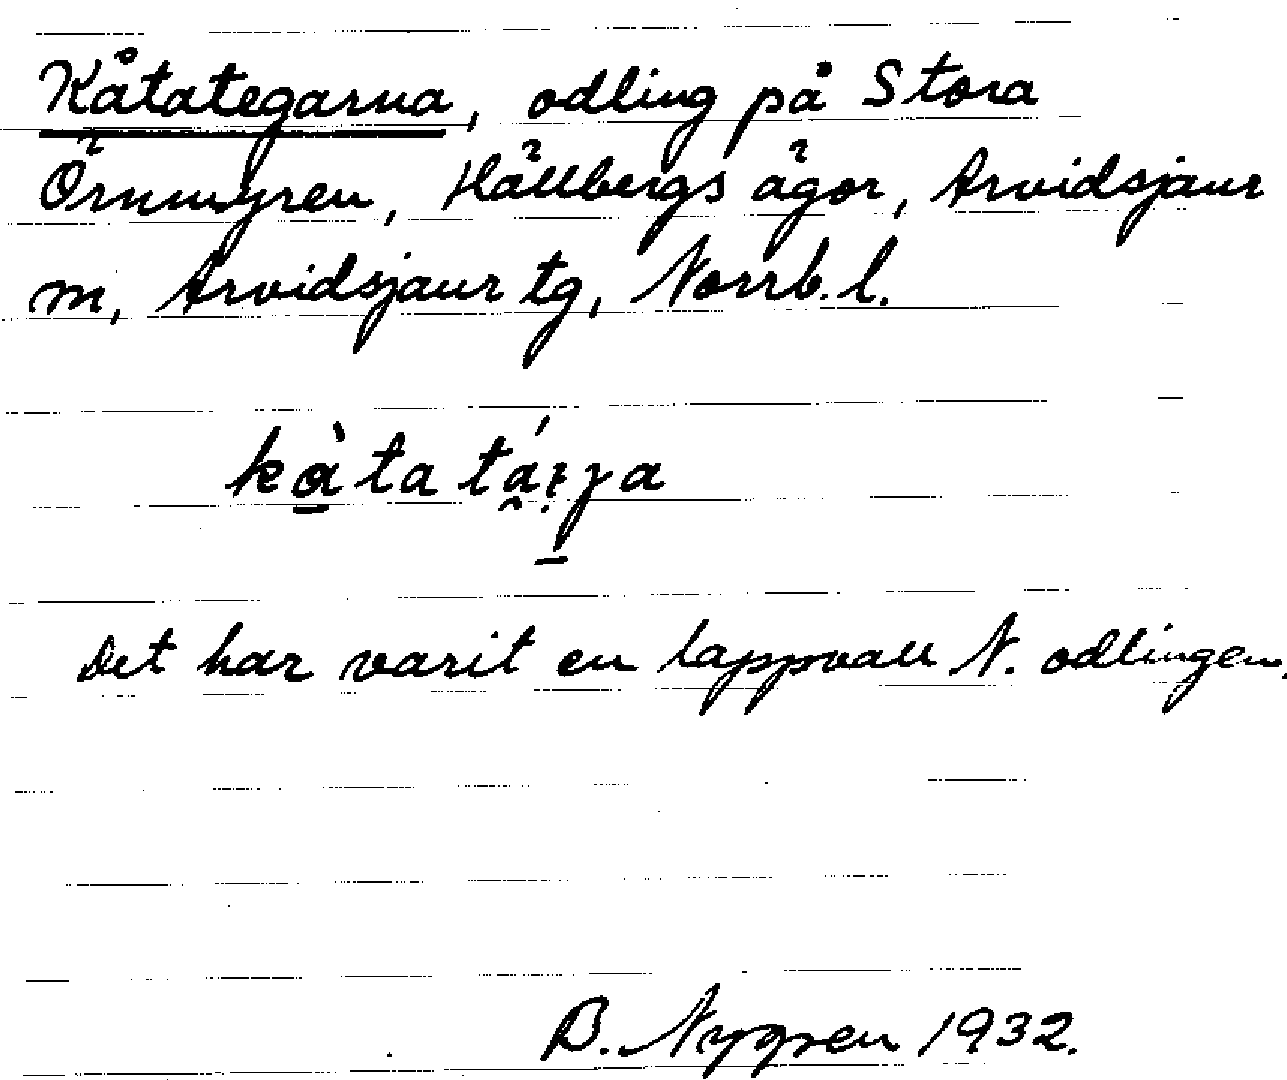 Kåtategarna, odling på Stora
Örnmyren, Hällbergs ägor, Arvidsjaur
m, Arvidsjaur tg, Norrb. l.
Det har varit en lappvall N. odlingen.
B. Nygren 1932.